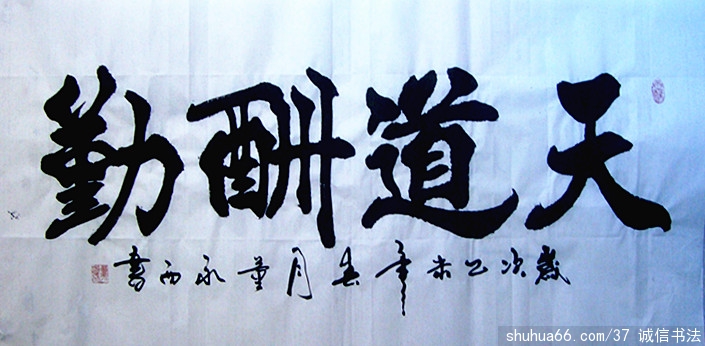 天道酬勤
歲次乙未年春月董永西書
shuhua66.com/37 诚信书法